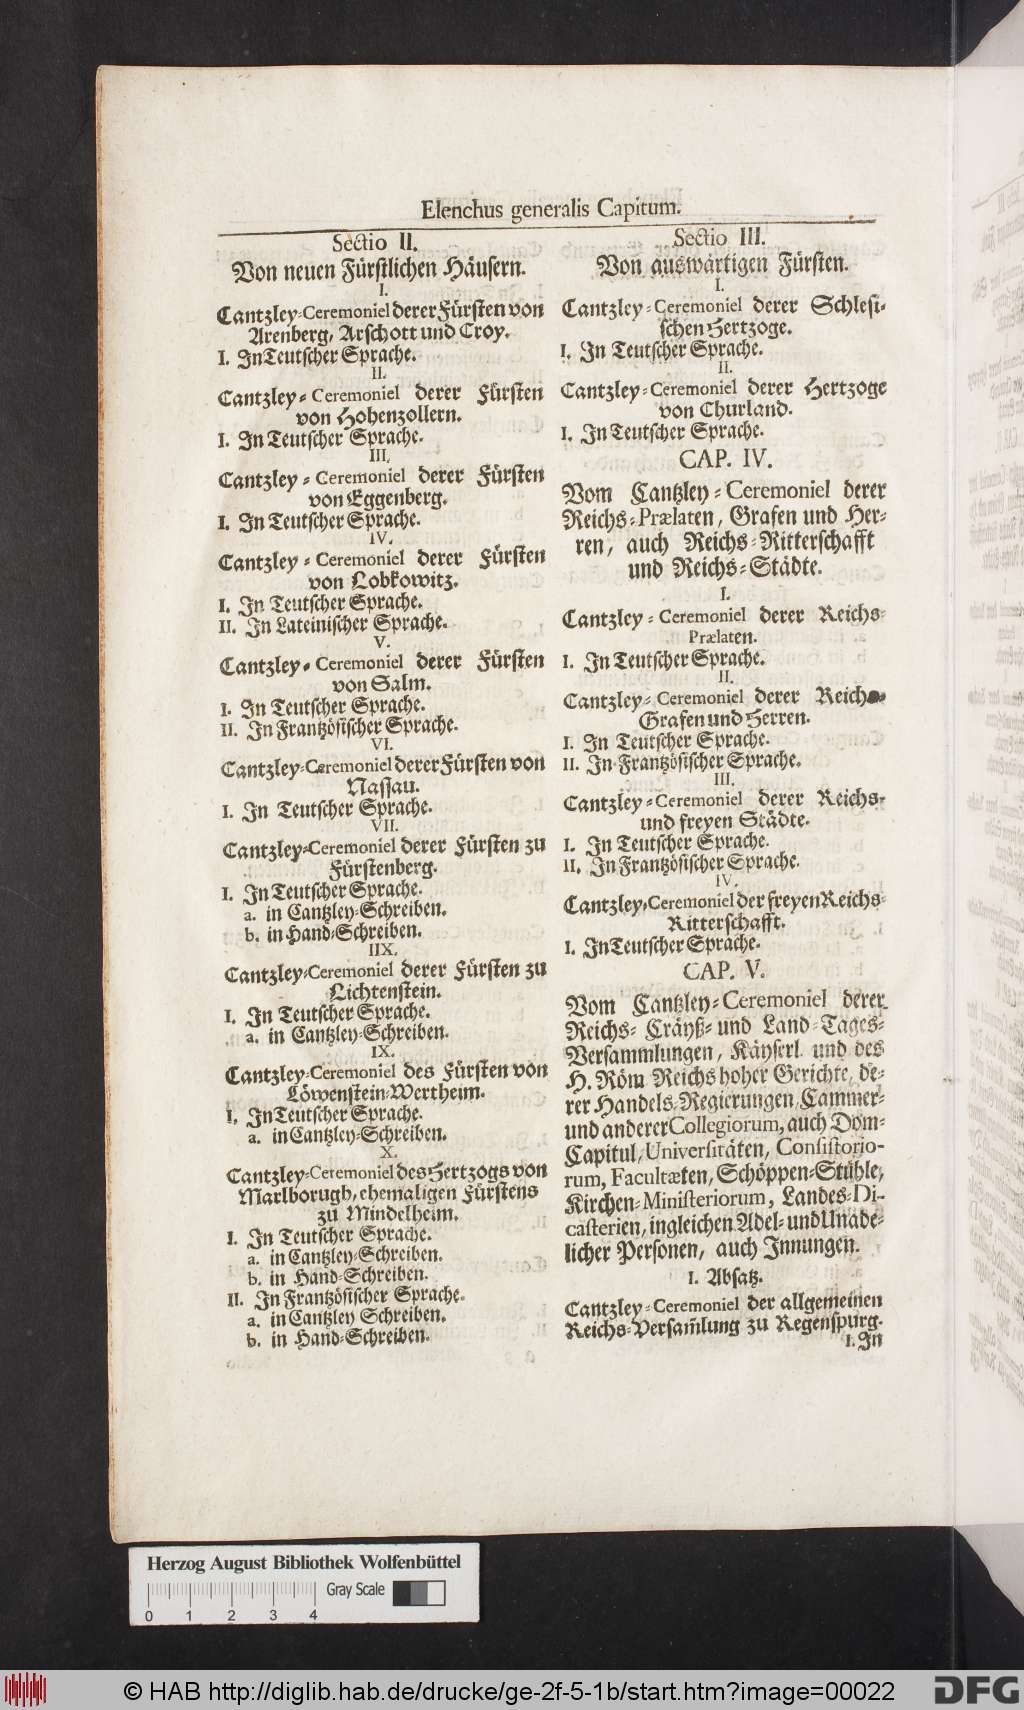 Elenchus generalis Capitum.
Sectio II.
Von neuen Fürstlichen Häusern.
I.
Cantzley-Ceremoniel derer Fürsten von
Arenberg, Arschott und Croy.
I. In Teutscher Sprache.
II.
Cantzley-Ceremoniel derer Fürsten
von Hohenzollern.
I. In Teutscher Sprache.
III.
Cantzley-Ceremoniel derer Fürsten
von Eggenberg.
I. In Teutscher Sprache.
IV.
Cantzley-Ceremoniel derer Fürsten
von Lobkowitz.
I. In Teutscher Sprache.
II. In Lateinischer Sprache.
V.
Cantzley-Ceremoniel derer Fürsten
von Salm.
I. In Teutscher Sprache.
II. In Frantzösischer Sprache.
VI.
Cantzley-Ceremoniel derer Fürsten von
Nassau.
I. In Teutscher Sprache.
VII.
Cantzley-Ceremoniel derer Fürsten zu
Fürstenberg.
I. In Teutscher Sprache.
a. in Cantzley-Schreiben.
b. in Hand-Schreiben.
IIX.
Cantzley-Ceremoniel derer Fürsten zu
Lichtenstein.
I. In Teutscher Sprache.
a. in Cantzley-Schreiben.
IX.
Cantzley-Ceremoniel des Fürsten von
Löwenstein-Wertheim.
I. In Teutscher Sprache.
a. in Cantzley-Schreiben.
X.
Cantzley-Ceremoniel des Hertzogs von
Marlborugh, ehemaligen Fürstens
zu Mindelheim.
I. In Teutscher Sprache.
a. in Cantzley-Schreiben.
b. in Hand-Schreiben.
II. In Frantzösischer Sprache.
a. in Cantzley Schreiben.
b. in Hand-Schreiben.
Sectio III.
Von auswärtigen Fürsten.
I.
Cantzley-Ceremoniel derer Schlesi-
schen Hertzoge.
I. In Teutscher Sprache.
II.
Cantzley-Ceremoniel derer Hertzoge
von Churland.
I. In Teutscher Sprache.
CAP. IV.
Vom Cantzley-Ceremoniel derer
Reichs-Prælaten, Grafen und Her-
ren, auch Reichs-Ritterschafft
und Reichs-Städte.
I.
Cantzley-Ceremoniel derer Reichs-
Prælaten.
I. In Teutscher Sprache.
II.
Cantzley-Ceremoniel derer Reichs-
Grafen und Herren.
I. In Teutscher Sprache.
II. In Frantzösischer Sprache.
III.
Cantzley-Ceremoniel derer Reichs-
und freyen Städte.
I. In Teutscher Sprache.
II. In Frantzösischer Sprache.
IV.
Cantzley-Ceremoniel der freyen Reichs-
Ritterschafft.
I. In Teutscher Sprache.
CAP. V.
Vom Cantzley-Ceremoniel derer
Reichs- Cräyß- und Land-Tages-
Versammlungen, Käyserl. und des
H. Röm Reichs hoher Gerichte, de-
rer Handels-Regierungen, Cammer-
und anderer Collegiorum, auch Dom-
Capitul, Universitäten, Consistorio-
rum, Facultæten, Schöppen-Stühle,
Kirchen-Ministeriorum, Landes-Di-
casterien, ingleichen Adel- und Unade-
licher Personen, auch Innungen.
I. Absatz.
Cantzley-Ceremoniel der allgemeinen
Reichs-Versam̃lung zu Regenspurg.
I. In
Herzog August Bibliothek Wolfenbüttel
Gray Scale
0 1 2 3 4
© HAB http://diglib.hab.de/drucke/ge-2f-5-1b/start.htm?image=00022
DFG